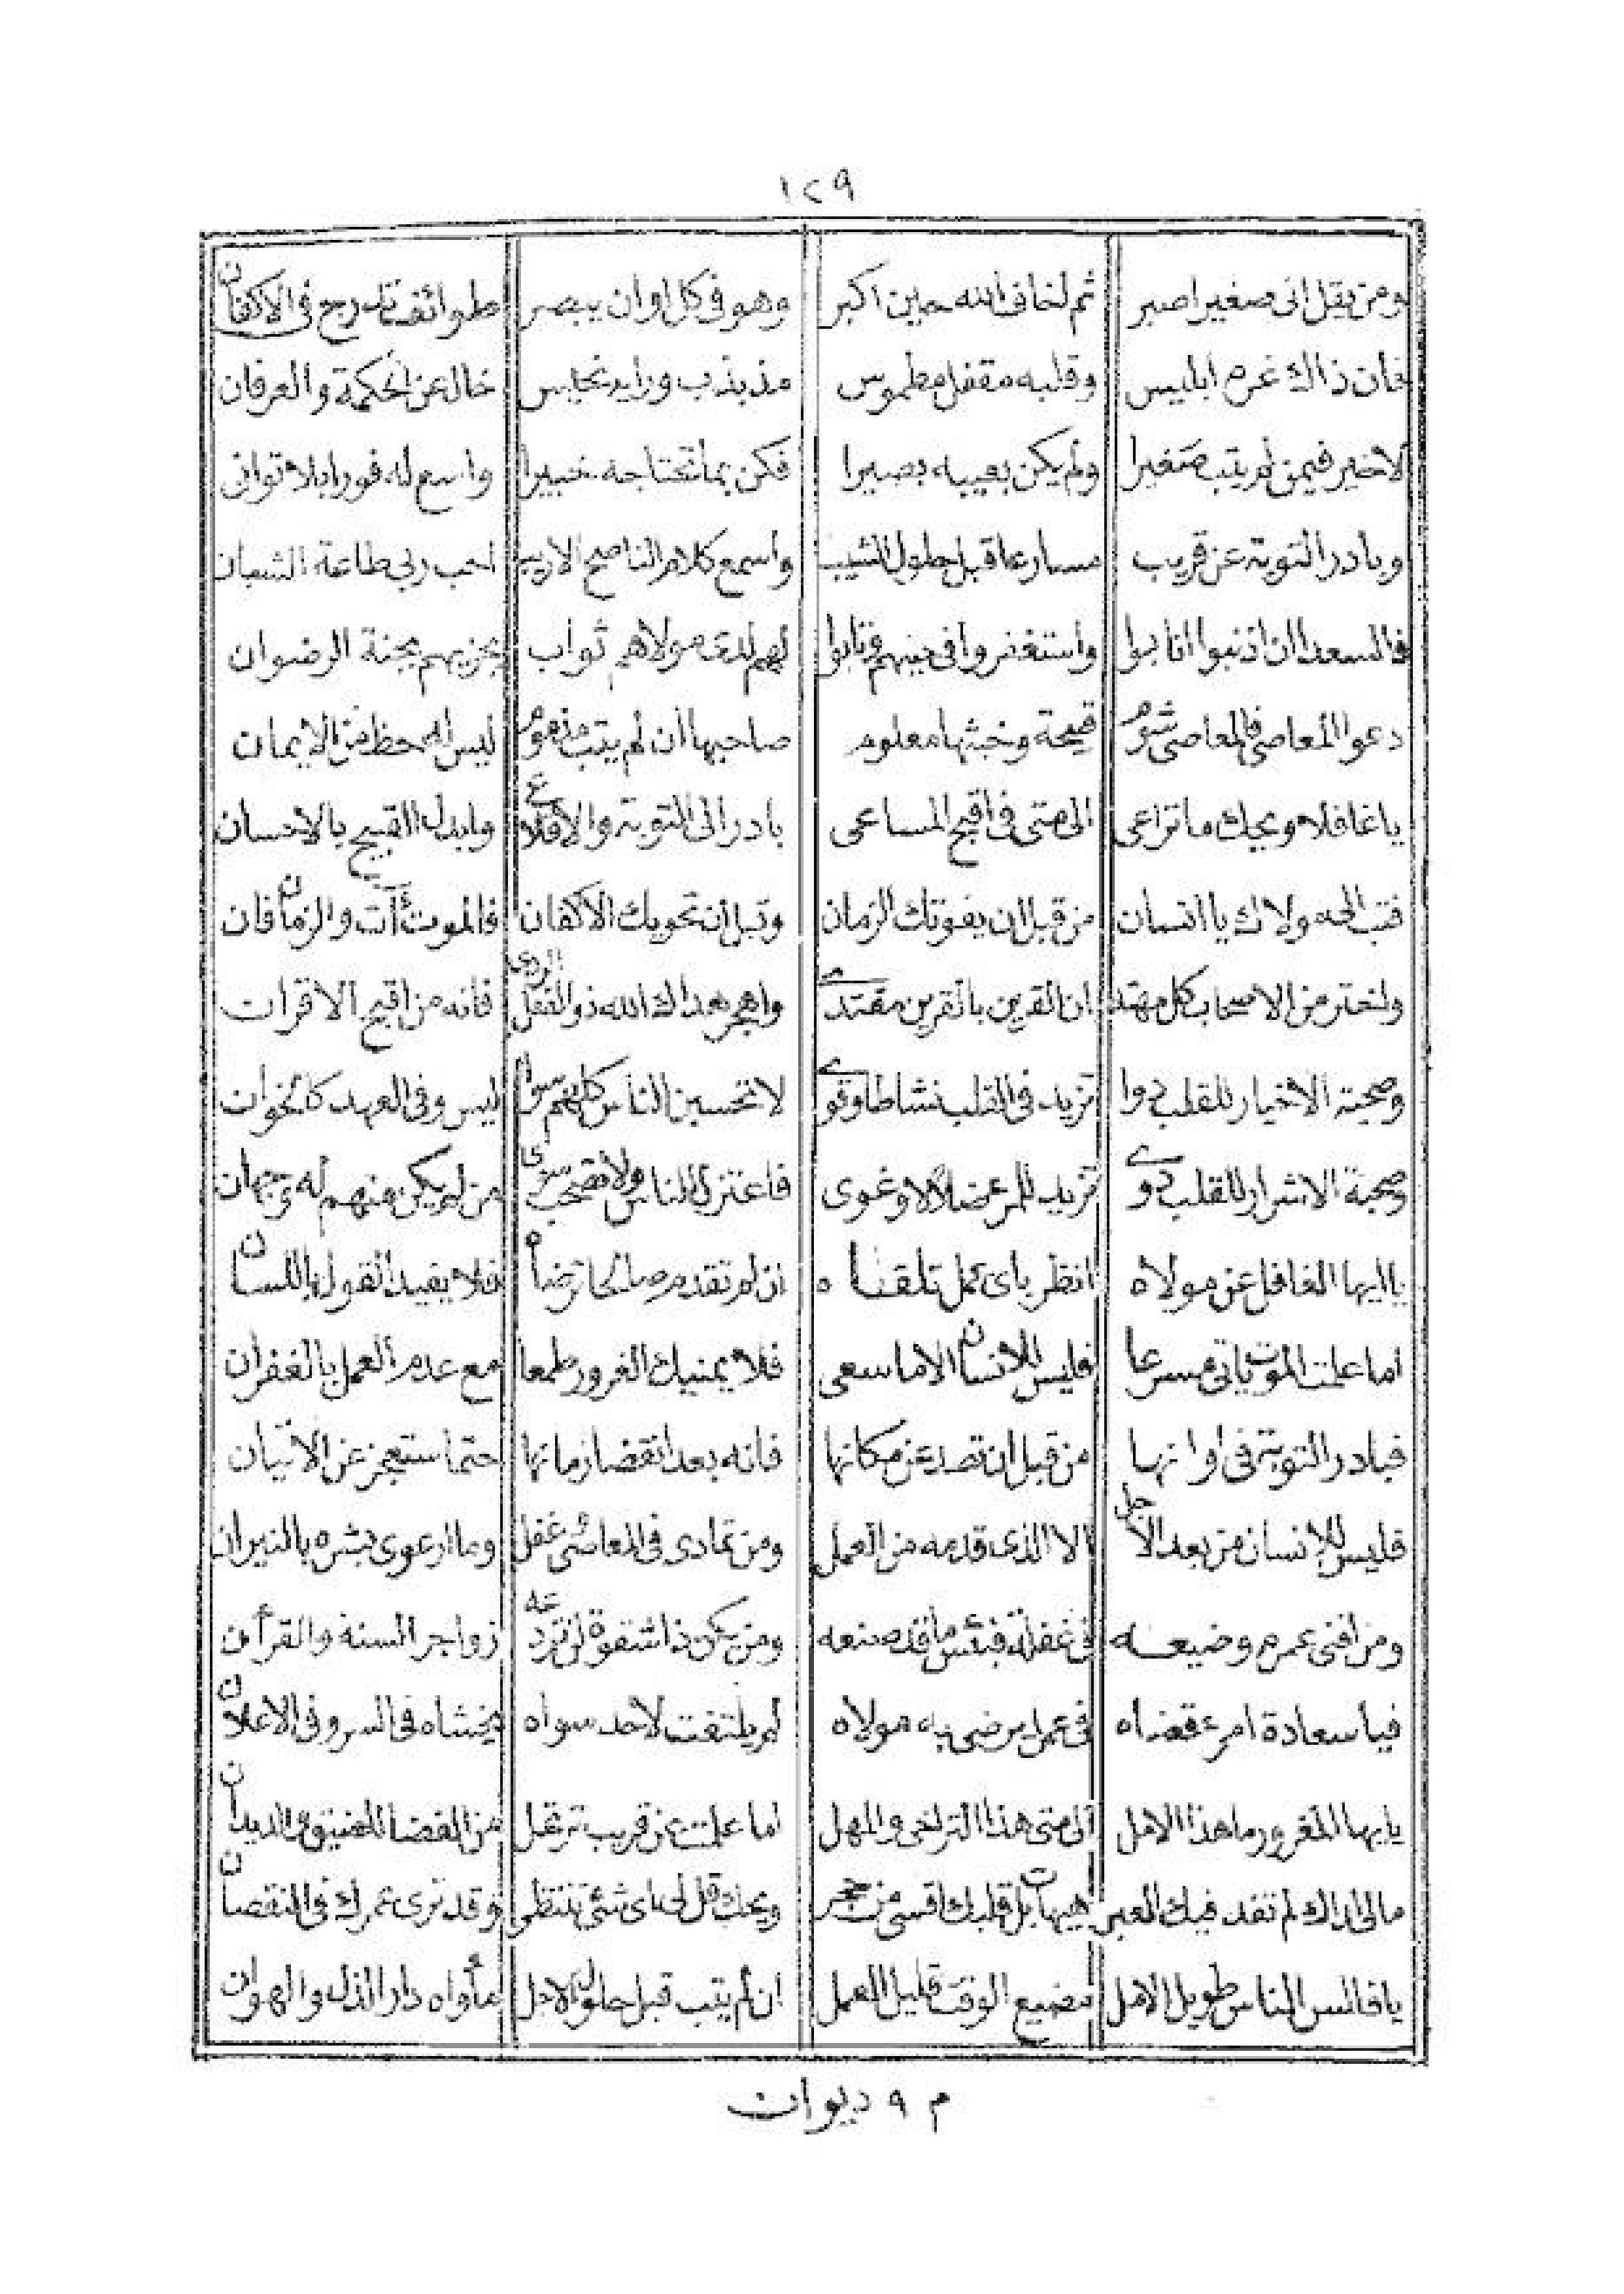 ١٢٩
ومن يقل انى صغير اصبر ثم اخاف الله حين اكبر وهو فى كل اوان يبصر طوائف تدرج فى الاكفان
فان ذاك غره ابليس وقلبه مقفل مطموس مذبذب وزايد نحايس خال عن الحكمة والعرفان
لاخير فيمن لم يتب صغيرا ولم يكن بعيبه بصيرا فكن بما تحتاجه خبيرا واسع له فورا بلا توانى
وبادر التوبة عن قريب مسارعا قبل حلول الشيب واسمع كلام الناصح الاريب احب ربى طاعة الشبان
فالسعدا ان اذنبوا انابوا وأستغفروا فى حينهم وتابوا لهم لدى مولاهم ثواب يجزيهم بجنة الرضوان
دعوا المعاصى فالمعاصى شوم قبيحة وخبثها معلوم صاحبها أن لم يتب مذموم ليس له حظ من الايمان
يا غافلا ويحك ما تراعى الى متى فى اقبح المساعى بادر الى التوبة والاقلاع وابدل القبيح بالاحسان
فتب الى مولاك يا انسان من قبل ان يفوتك الزمان وقبل أن تحويك الاكفان فالموت آت والزمان فان
ولتختر من الاصحاب كل مهتد ان القرين بالقرين مقتدى واهجر هداك الله ذو الفعل الردى فانه من اقبح الاقران
وصحبة الاخيار للقلب دوا تزيد فى القلب نشاطا وقوى لا تحسبن الناس كلهم سوا ليس وفى العهد كالخوان
وصحبة الاشرار للقلب دوى تزيد للمرء ضلالا وغوى فاعتزل الناس ولا تصحب سوى من لم يكن منهم له وجهان
يا ايها الغافل عن مولاه انظر باى عمل تلقاه ان لم تقدم صالحا ترضاه فلا يفيد القول باللسان
أما علمت الموت ياتى مسرعا فليس للانسان الا ما سعى فلا يمنيك الغرور طمعا مع عدم العمل بالغفران
فبادر التوبة فى اوانها من قبل ان تصد عن مكانها فانه بعد انقضا زمانها حتما ستعجز عن الاتيان
فليس للانسان من بعد الاجل الا الذى قدمه من العمل ومن تمادى فى المعاصى وغفل وما ارعوى بشره بالنيران
ومن افنى عمره وضيعه فى غفلة فبئس ما قد صنعه ومن يكن ذا شقوة لن تردعه زواجر السنة والقرأن
فيا سعادة امرء قضاه فى عمل يرضى به مولاه لم يلتفت لاحد سواه يخشاه فى السر وفى الاعلان
يا ايها المغرور ما هذا الامل الى متى هذا التراخى والمهل اما علمت عن قريب ترتحل من الفضا للضيق والديدان
مالى اراك لم تفد فيك العبر هيهات بل قلبك اقسى من حجر ويحك قل لى اى شئ تنتظر وقد ترى عمرك فى النقصان
يا فالس الناس طويل الامل مضيع الوقت قليل العمل ان لم يتب قبل حلول الاجل مأواه دار الذل والهوان
م ٩ ديوان